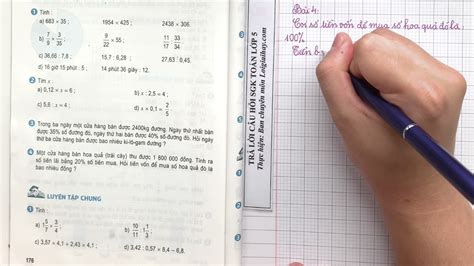 1 Tính :
a) 683 × 35 ; 1954 × 425 ; 2438 × 306.
b) 7/9 × 3/35 ; 9/22 × 55 ;
c) 36,66 : 7,8 ; 15,7 : 6,28 ; 27,63 : 0,45.
d) 16 giờ 15 phút : 5 ; 14 phút 36 giây : 12.
2 Tìm x :
a) 0,12 × x = 6 ; b) x : 2,5 = 4 ;
c) 5,6 : x = 4 ; d) x × 0,1 = 2/5
3 Trong ba ngày một cửa hàng bán được 2400kg đường. Ngày thứ nhất bán
được 35% số đường đó, ngày thứ hai bán được 40% số đường đó. Hỏi ngày
thứ ba cửa hàng bán được bao nhiêu ki-lô-gam đường ?
4 Một cửa hàng bán hoa quả (trái cây) thu được 1 800 000 đồng. Tính ra
số tiền lãi bằng 20% số tiền mua. Hỏi tiền vốn để mua số hoa quả đó là
bao nhiêu đồng ?
LUYỆN TẬP CHUNG
1 Tính :
a) 1 5/7 × 3/4 ; b) 10/11 : 1 1/3 ;
c) 3,57 × 4,1 + 2,43 × 4,1 ; d) 3,42 : 0,57 × 8,4 – 6,8.
176
TRẢ LỜI CÂU HỎI SGK TOÁN LỚP 5
Thực hiện: Ban chuyên môn Loigiaihay.com
Bài 4:
Coi số tiền vốn để mua số hoa quả đó là
100%
Tiền b